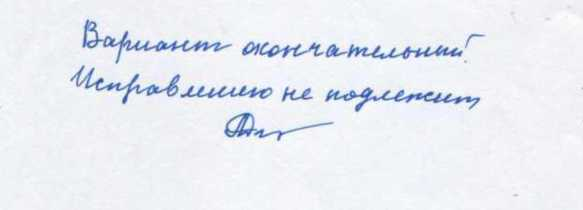 Вариант окончательный!
Исправлению не подлежит